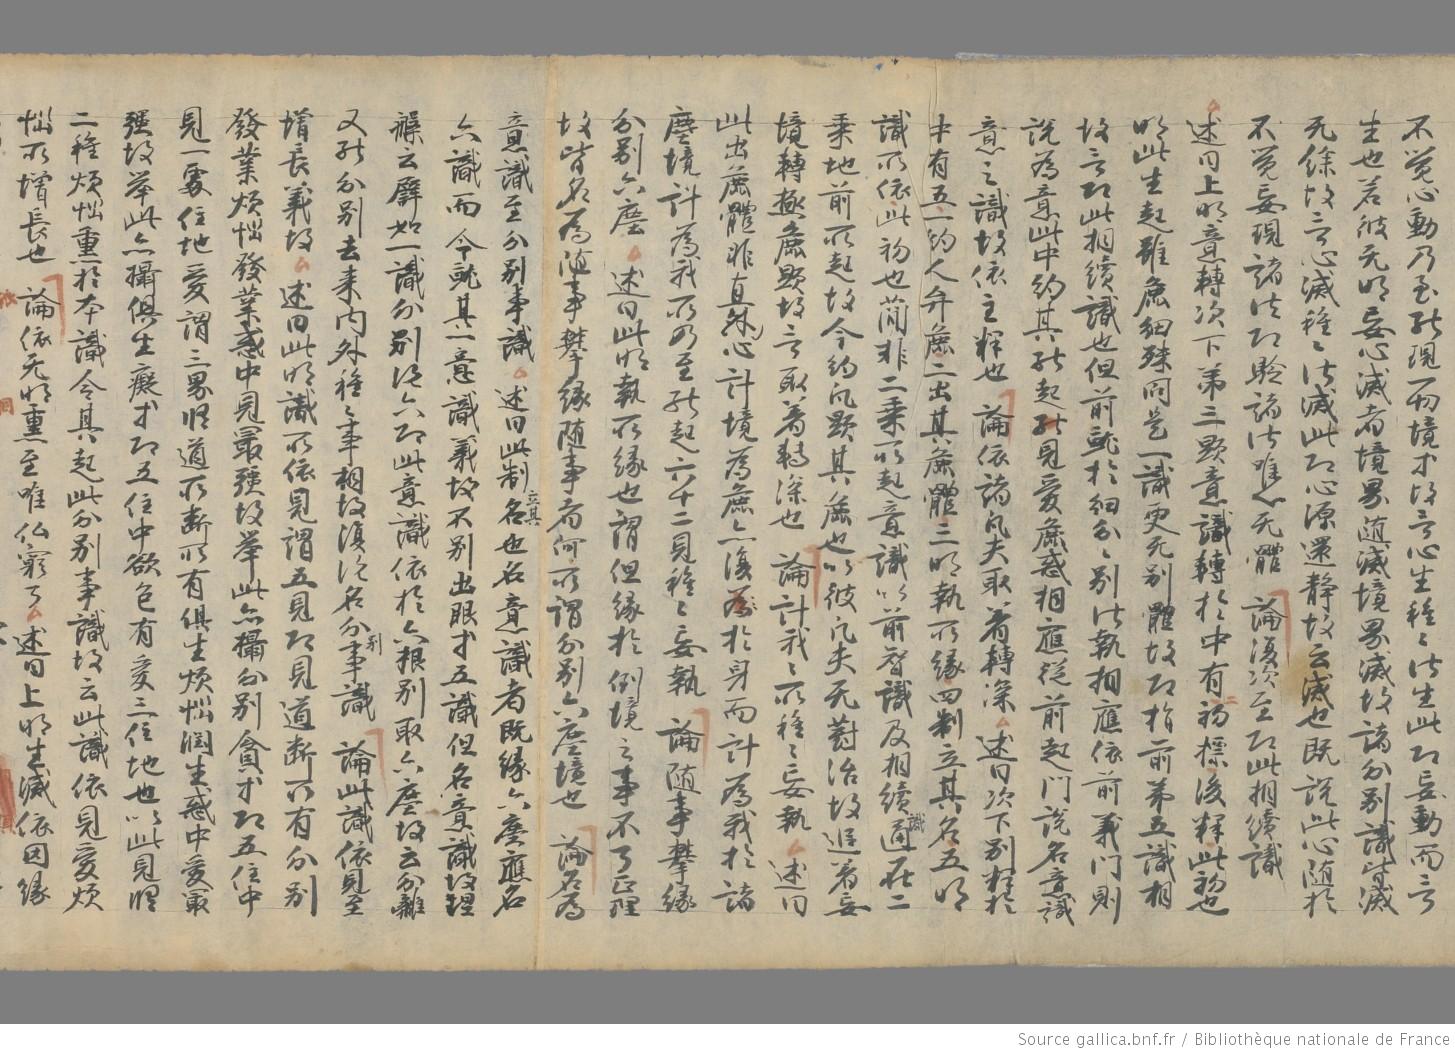 不覺心動乃至能現一切境等故言心生種々法生此即妄動而言
生也若彼无明妄心滅者境界随滅境界滅故諸分別識皆滅
无餘故言心滅種々法滅此即心源還静故云滅也既說此心随於
不覺妄現諸法即驗諸法唯心无體 論復次至即此相續識
述曰上明意轉次下第三顯意識轉於中有二初標後釋此初也
明此生起雖麁細殊同是一識更无別體故即指前第五識相
故言即此相續識也但前就於細分々別法執相應依前義門則
說為意此中約其能起能見愛麁惑相應從前起門說名意識
意之識故依主釋也 論依諸凡夫取着轉深 述曰次下別釋於
中有五一約人弁麁二出其麁體三明執所緣四制立其名五明
識所依此初也簡非二乘所起意識以前智識及相續識通在二
乘地前所起故今約凡顯其麁也以彼凡夫无對治故追着妄
境轉極麁顯故言取着轉深也 論計我々所種々妄執 述曰
此出麁體非直於心計境為麁亦復於身而計為我於諸
塵境計為我所乃至能起六十二見種々妄執 論随事攀緣
分別六塵 述曰此明執所緣也謂但緣於倒境之事不了正理
故皆名為随事攀緣随事者何所謂分別六塵境也 論名為
意識至分別事識 述曰此制立其名也名意識者既緣六塵應名
六識而今就其一意識義故不別出眼等五識但名意識故理
釋云譬如一識分別說六即此意識依於六根別取六塵故云分離
又能分別去来內外種々事相故復說名分別事識 論此識依見至
增長義故 述曰此明識所依見謂五見即見道断所有分別
發業煩惱發業惑中見最强故舉此亦攝分別貪等即五住中
見一處住地愛謂三界修道所断所有俱生煩惱潤生惑中愛最
强故舉此亦攝俱生癡等即五住中欲色有愛三住地也以此見修
二種煩惱熏於本識令其起此分別事識故云此識依見愛煩
惱所增長也 論依无明熏至唯仏窮了 述曰上明生滅依因緣
Source gallica.bnf.fr / Bibliothèque nationale de France